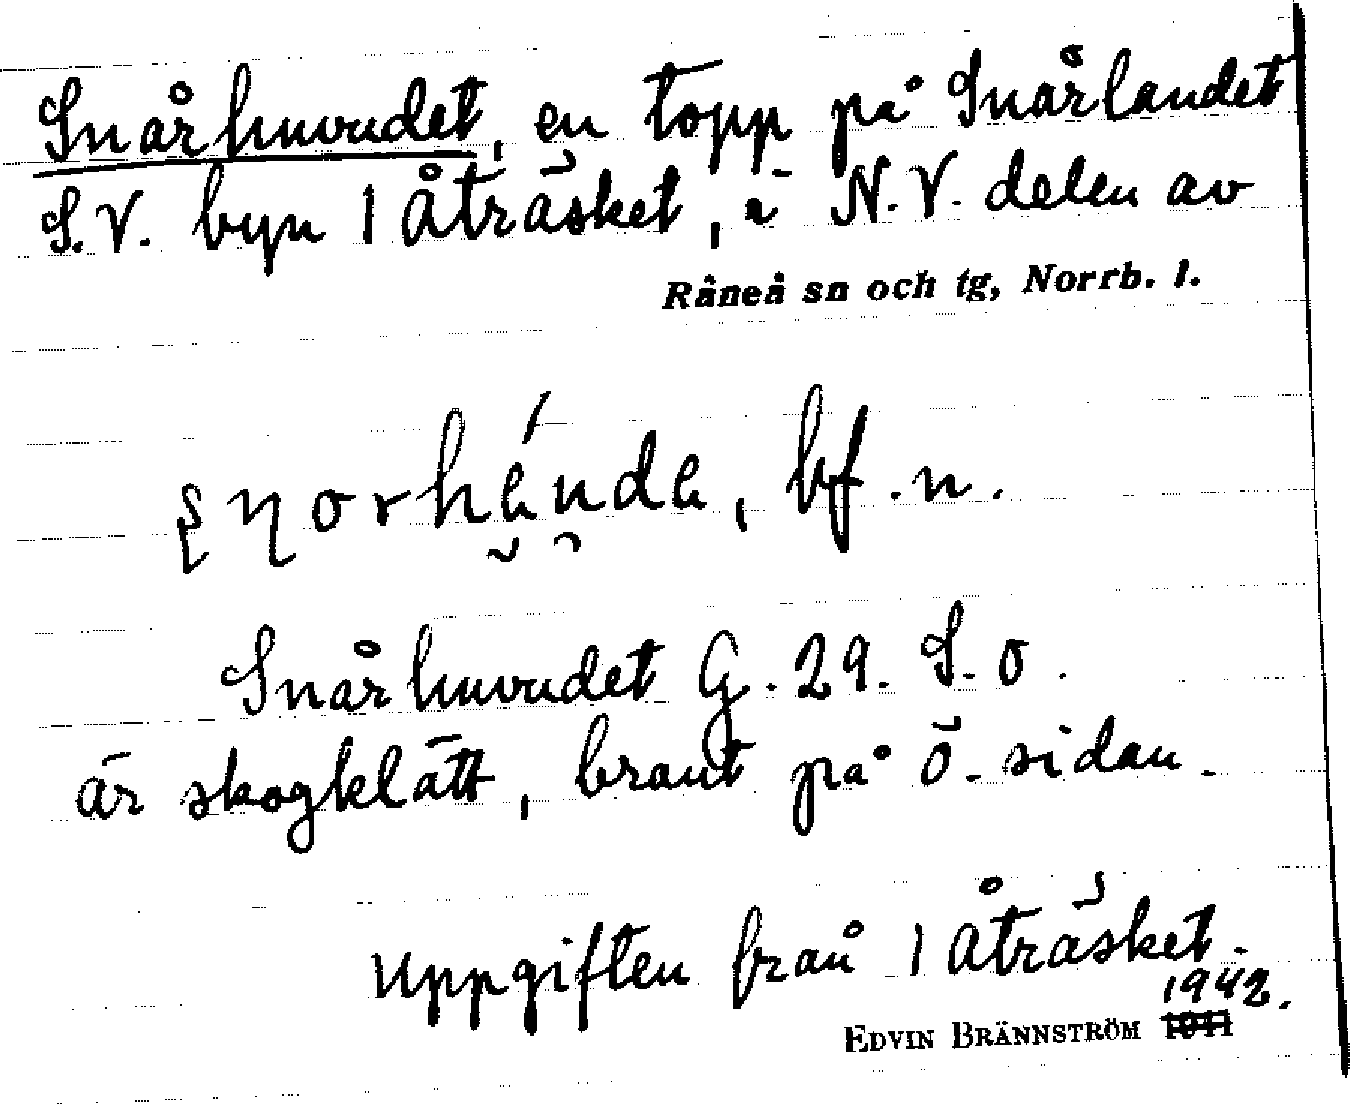 Snårhuvudet, en topp på Snårlandet
S.V. byn 1 Åträsket, i N.V. delen av
Råneå sn och tg, Norrb. l.
bf. n.
Snårhuvudet G. 29. S. o.
är skogklätt, brant på ö. sidan.
Uppgiften från 1 Åträsket.
1942.
EDVIN BRÄNNSTRÖM 1941